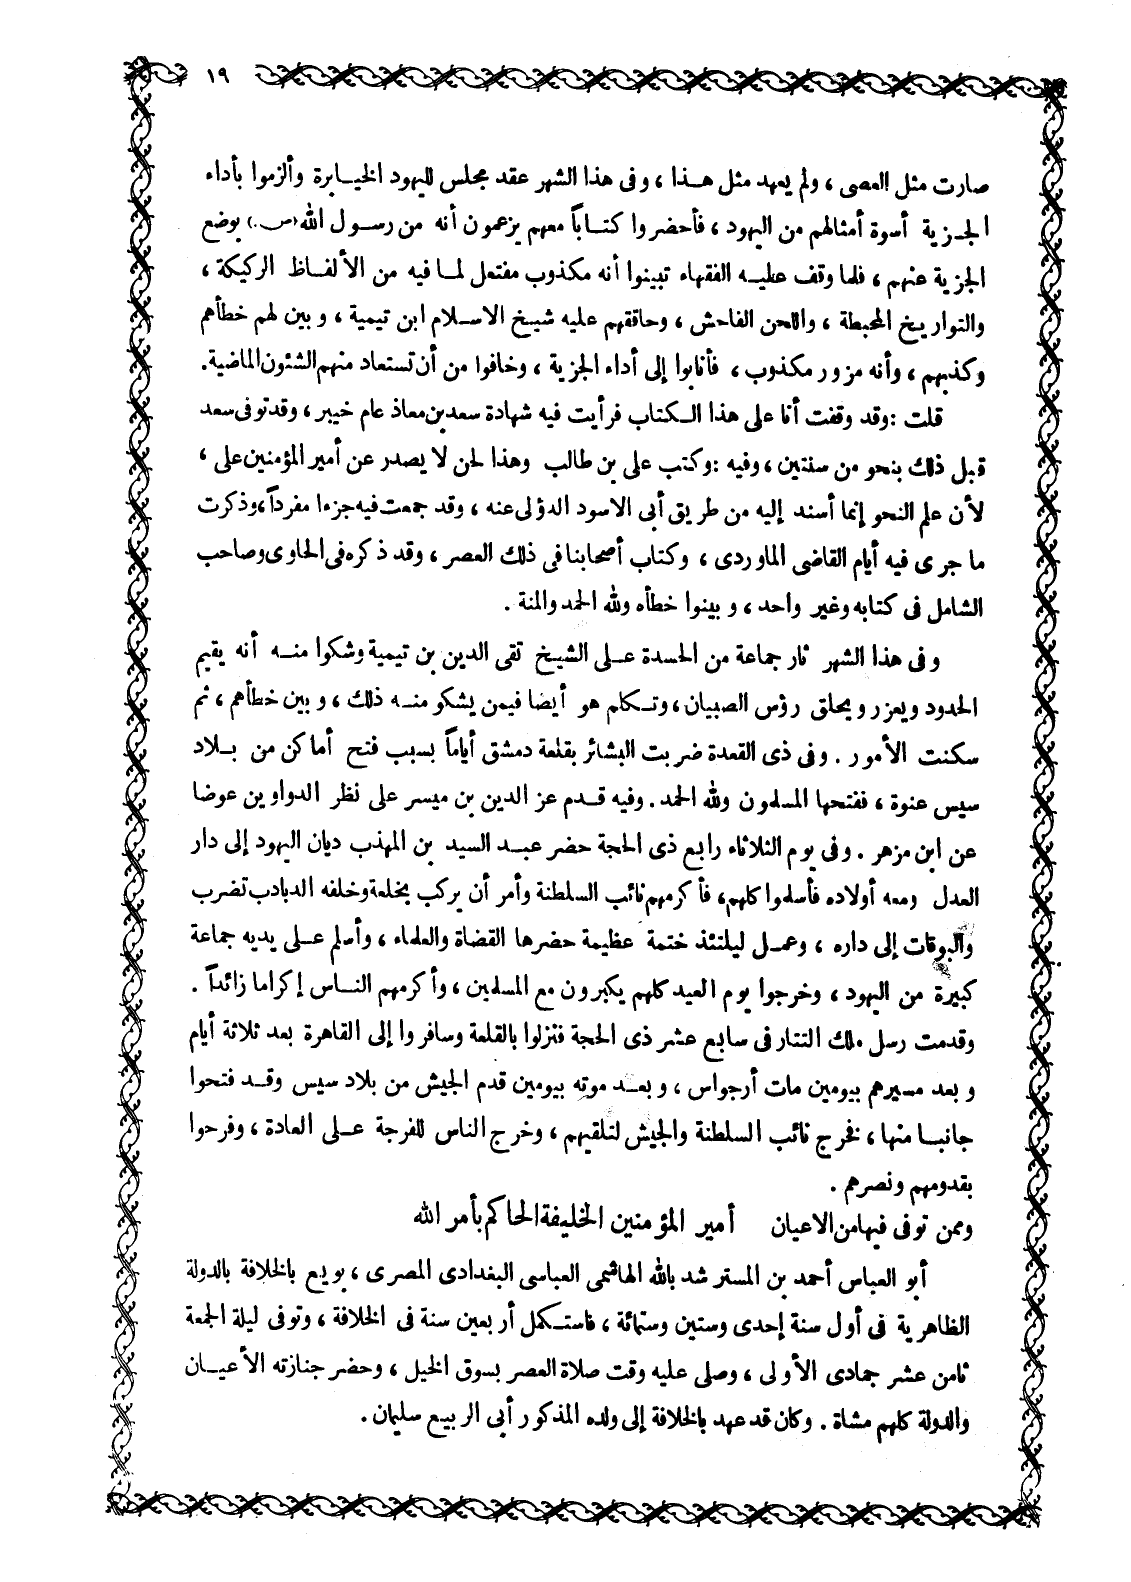 ١٩
صارت مثل العصى ، ولم يعهد مثل هذا ، وفى هذا الشهر عقد مجلس لليهود الخيابرة وألزموا بأداء
الجزية أسوة أمثالهم من اليهود ، فأحضروا كتاباً معهم يزعمون أنه من رسول الله (ص.) بوضع
الجزية عنهم ، فلما وقف عليه الفقهاء تبينوا أنه مكذوب مفتعل لما فيه من الألفاظ الركيكة ،
والتواريخ المحبطة ، واللحن الفاحش ، وحاققهم عليه شيخ الاسلام ابن تيمية ، وبين لهم خطأهم
وكذبهم ، وأنه مزور مكذوب ، فأنابوا إلى أداء الجزية ، وخافوا من أن تستعاد منهم الشئون الماضية.
قلت : وقد وقفت أنا على هذا الكتاب فرأيت فيه شهادة سعد بن معاذ عام خيبر ، وقد توفى سعد
قبل ذلك بنحو من سنتين ، وفيه : وكتب على بن طالب وهذا لحن لا يصدر عن أمير المؤمنين على ،
لأن علم النحو إنما أسند إليه من طريق أبى الاسود الدؤلى عنه ، وقد جمعت فيه جزءا مفرداً ، وذكرت
ما جرى فيه أيام القاضى الماوردى ، وكتاب أصحابنا فى ذلك العصر ، وقد ذكره فى الحاوى وصاحب
الشامل فى كتابه وغير واحد ، وبينوا خطأه ولله الحمد والمنة .
وفى هذا الشهر ثار جماعة من الحسدة على الشيخ تقى الدين بن تيمية وشكوا منه أنه يقيم
الحدود ويعزر ويحلق رؤس الصبيان ، وتكلم هو أيضا فيمن يشكو منه ذلك ، وبين خطأهم ، ثم
سكنت الأمور . وفى ذى القعدة ضربت البشائر بقلعة دمشق أياماً بسبب فتح أماكن من بلاد
سيس عنوة ، ففتحها المسلمون ولله الحمد . وفيه قدم عز الدين بن ميسر على نظر الدواوين عوضا
عن ابن مزهر . وفى يوم الثلاثاء رابع ذى الحجة حضر عبد السيد بن المهذب ديان اليهود إلى دار
العدل ومعه أولاده فأسلموا كلهم، فأكرمهم نائب السلطنة وأمر أن يركب بخلعة وخلفه الدبادب تضرب
والبوقات إلى داره ، وعمل ليلتئذ ختمة عظيمة حضرها القضاة والعلماء ، وأسلم على يديه جماعة
كبيرة من اليهود ، وخرجوا يوم العيد كلهم يكبرون مع المسلمين ، وأكرمهم الناس إكراما زائداً .
وقدمت رسل ملك التتار فى سابع عشر ذى الحجة فنزلوا بالقلعة وسافروا إلى القاهرة بعد ثلاثة أيام
وبعد مسيرهم بيومين مات أرجواس ، وبعد موته بيومين قدم الجيش من بلاد سيس وقد فتحوا
جانبا منها ، فخرج نائب السلطنة والجيش لتلقيهم ، وخرج الناس للفرجة على العادة ، وفرحوا
بقدومهم ونصرهم .
وممن توفى فيها من الاعيان أمير المؤمنين الخليفة الحاكم بأمر الله
أبو العباس أحمد بن المسترشد بالله الهاشمى العباسى البغدادى المصرى ، بويع بالخلافة بالدولة
الظاهرية فى أول سنة إحدى وستين وستمائة ، فاستكمل أربعين سنة فى الخلافة ، وتوفى ليلة الجمعة
ثامن عشر جمادى الأولى ، وصلى عليه وقت صلاة العصر بسوق الخيل ، وحضر جنازته الأعيان
والدولة كلهم مشاة . وكان قد عهد بالخلافة إلى ولده المذكور أبى الربيع سليمان .